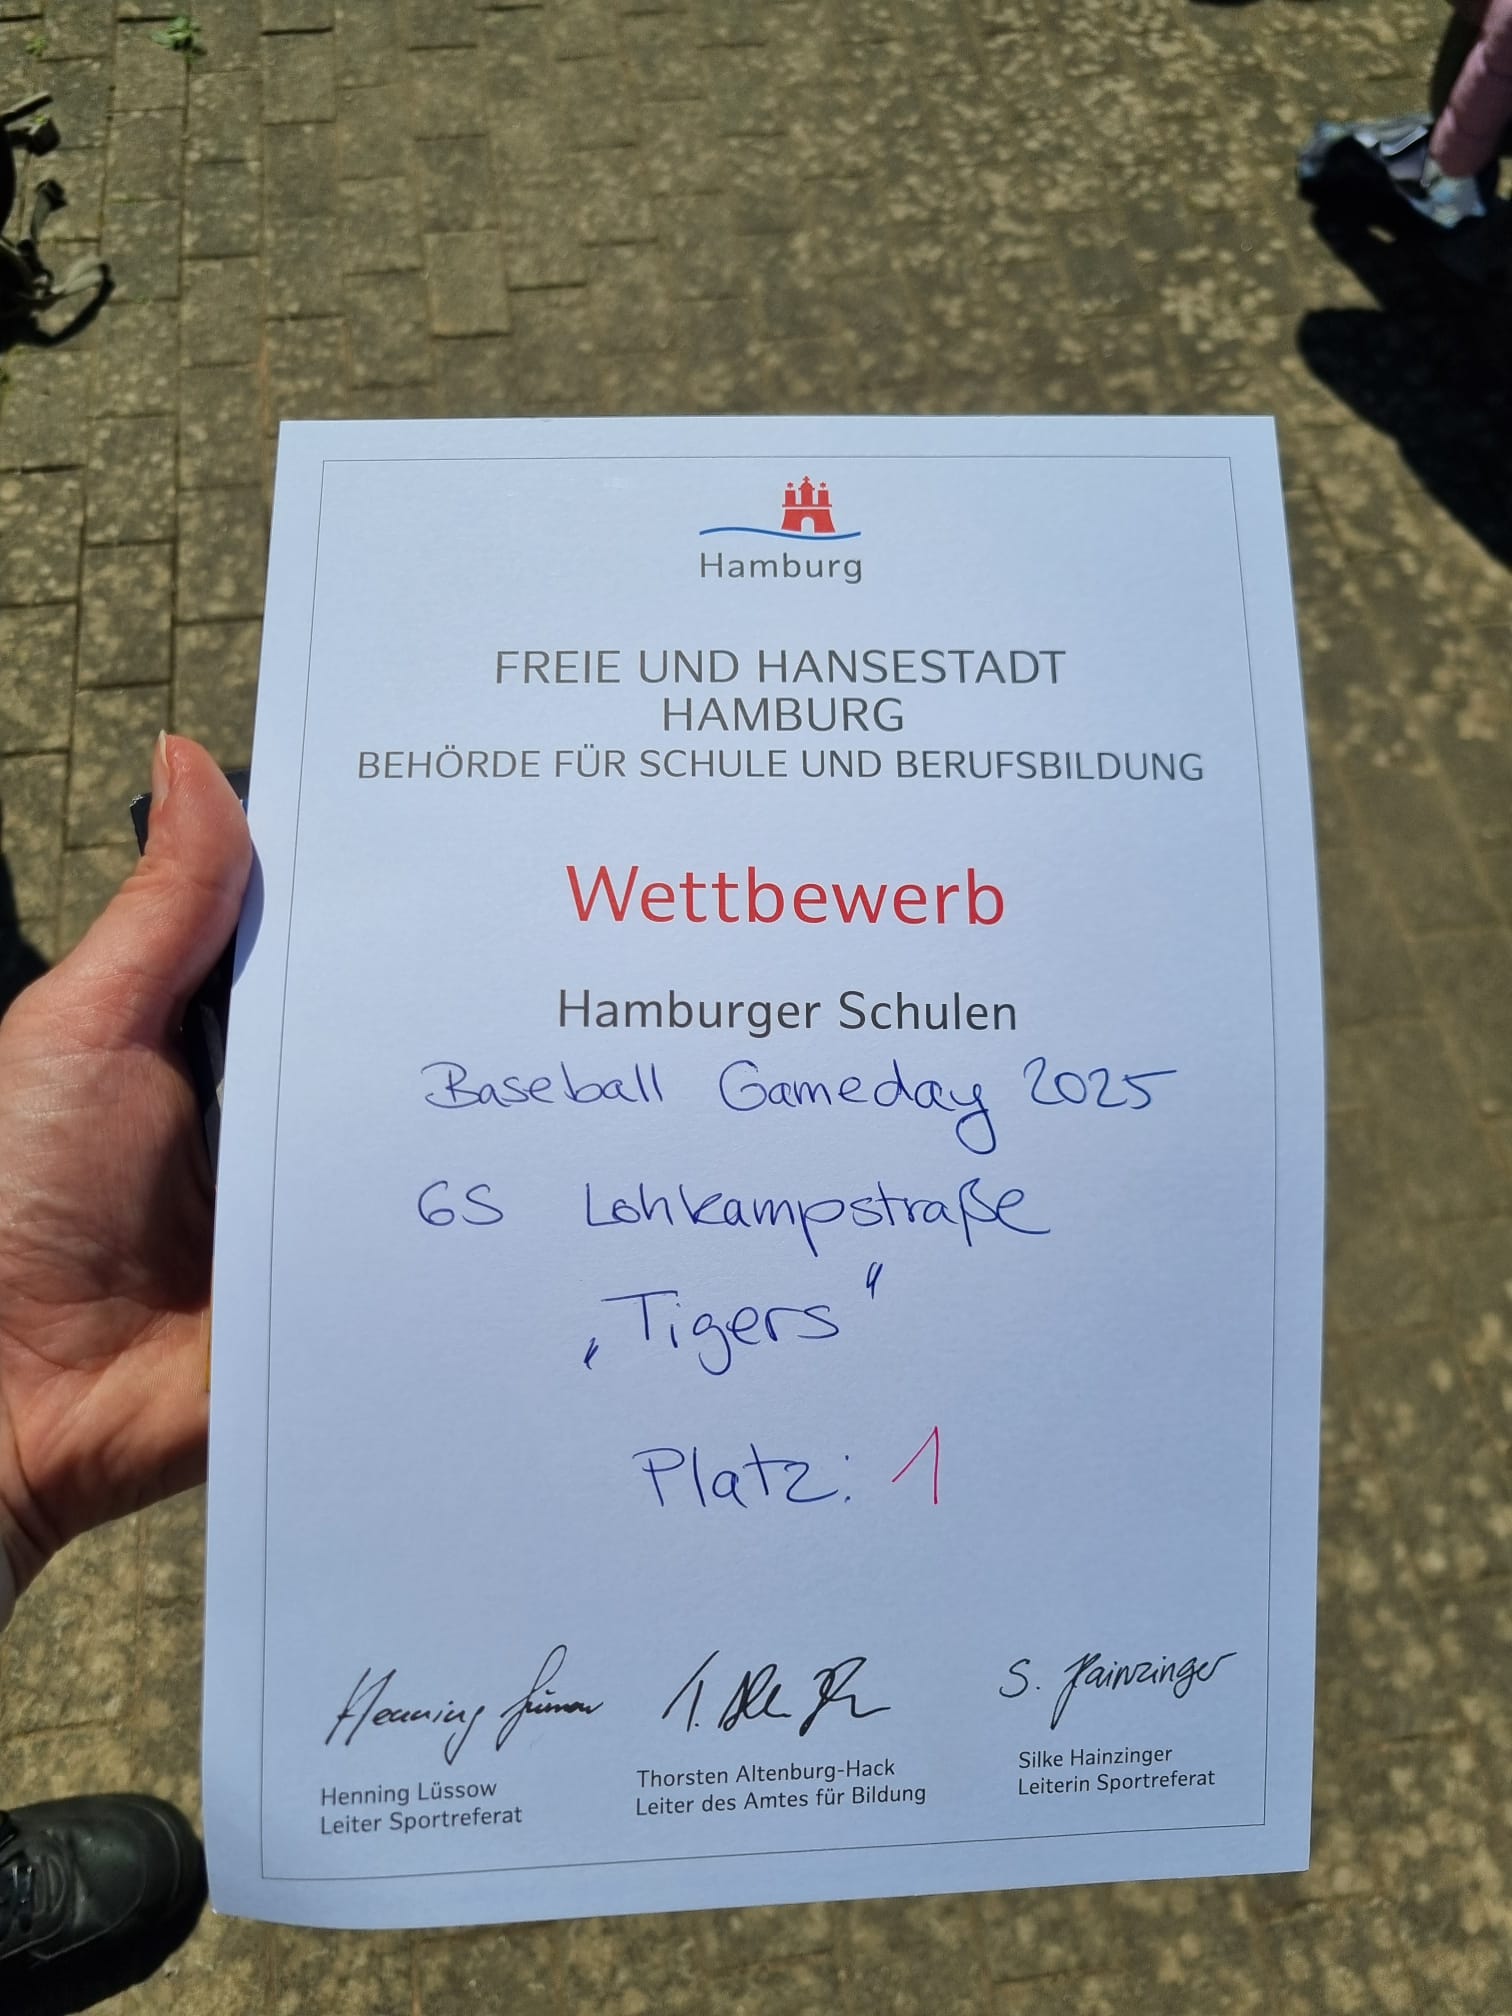 Hamburg
FREIE UND HANSESTADT
HAMBURG
BEHÖRDE FÜR SCHULE UND BERUFSBILDUNG
Wettbewerb
Hamburger Schulen
Baseball Gameday 2025
GS Lohkampstraße
„Tigers“
Platz: 1
S. Hainzinger
Henning Lüssow
Leiter Sportreferat
Thorsten Altenburg-Hack
Leiter des Amtes für Bildung
Silke Hainzinger
Leiterin Sportreferat